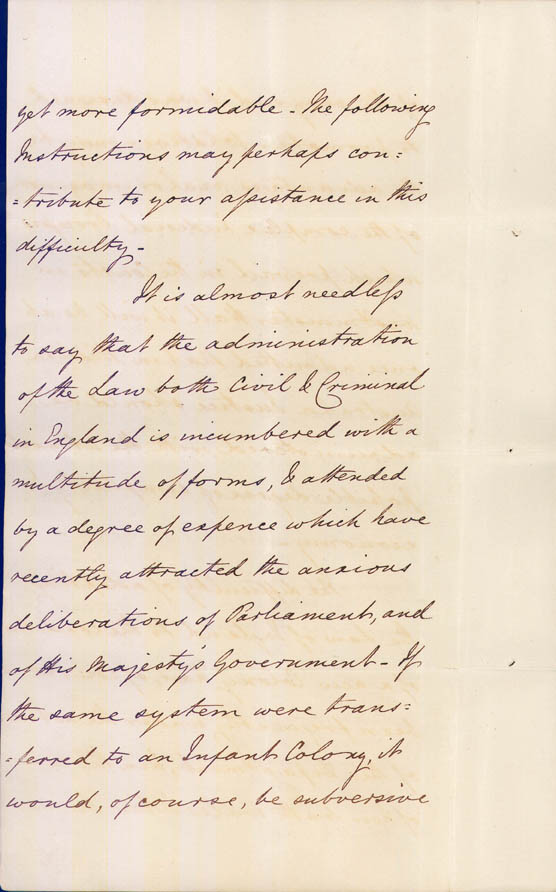 yet more formidable - The following
Instructions may perhaps con=
=tribute to your assistance in this
difficulty -
It is almost needless
to say that the administration
of the Law both Civil & Criminal
in England is incumbered with a
multitude of forms, & attended
by a degree of expence which have
recently attracted the anxious
deliberations of Parliament, and
of His Majesty's Government - If
the same system were trans=
=ferred to an Infant Colony, it
would, of course, be subversive